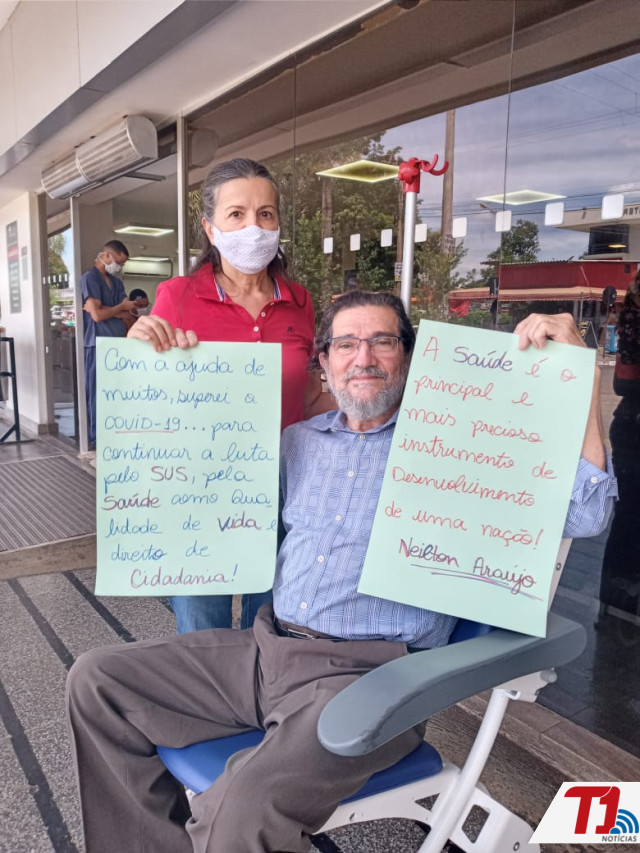 Com a ajuda de
muitos, superei a
COVID-19... para
continuar a luta
pelo SUS, pela
Saúde como Qua
lidade de vida e
direito de
Cidadania!
A Saúde é o
principal e
mais precioso
instrumento de
Desenvolvimento
de uma nação!
Neilton Araújo
T1
NOTÍCIAS